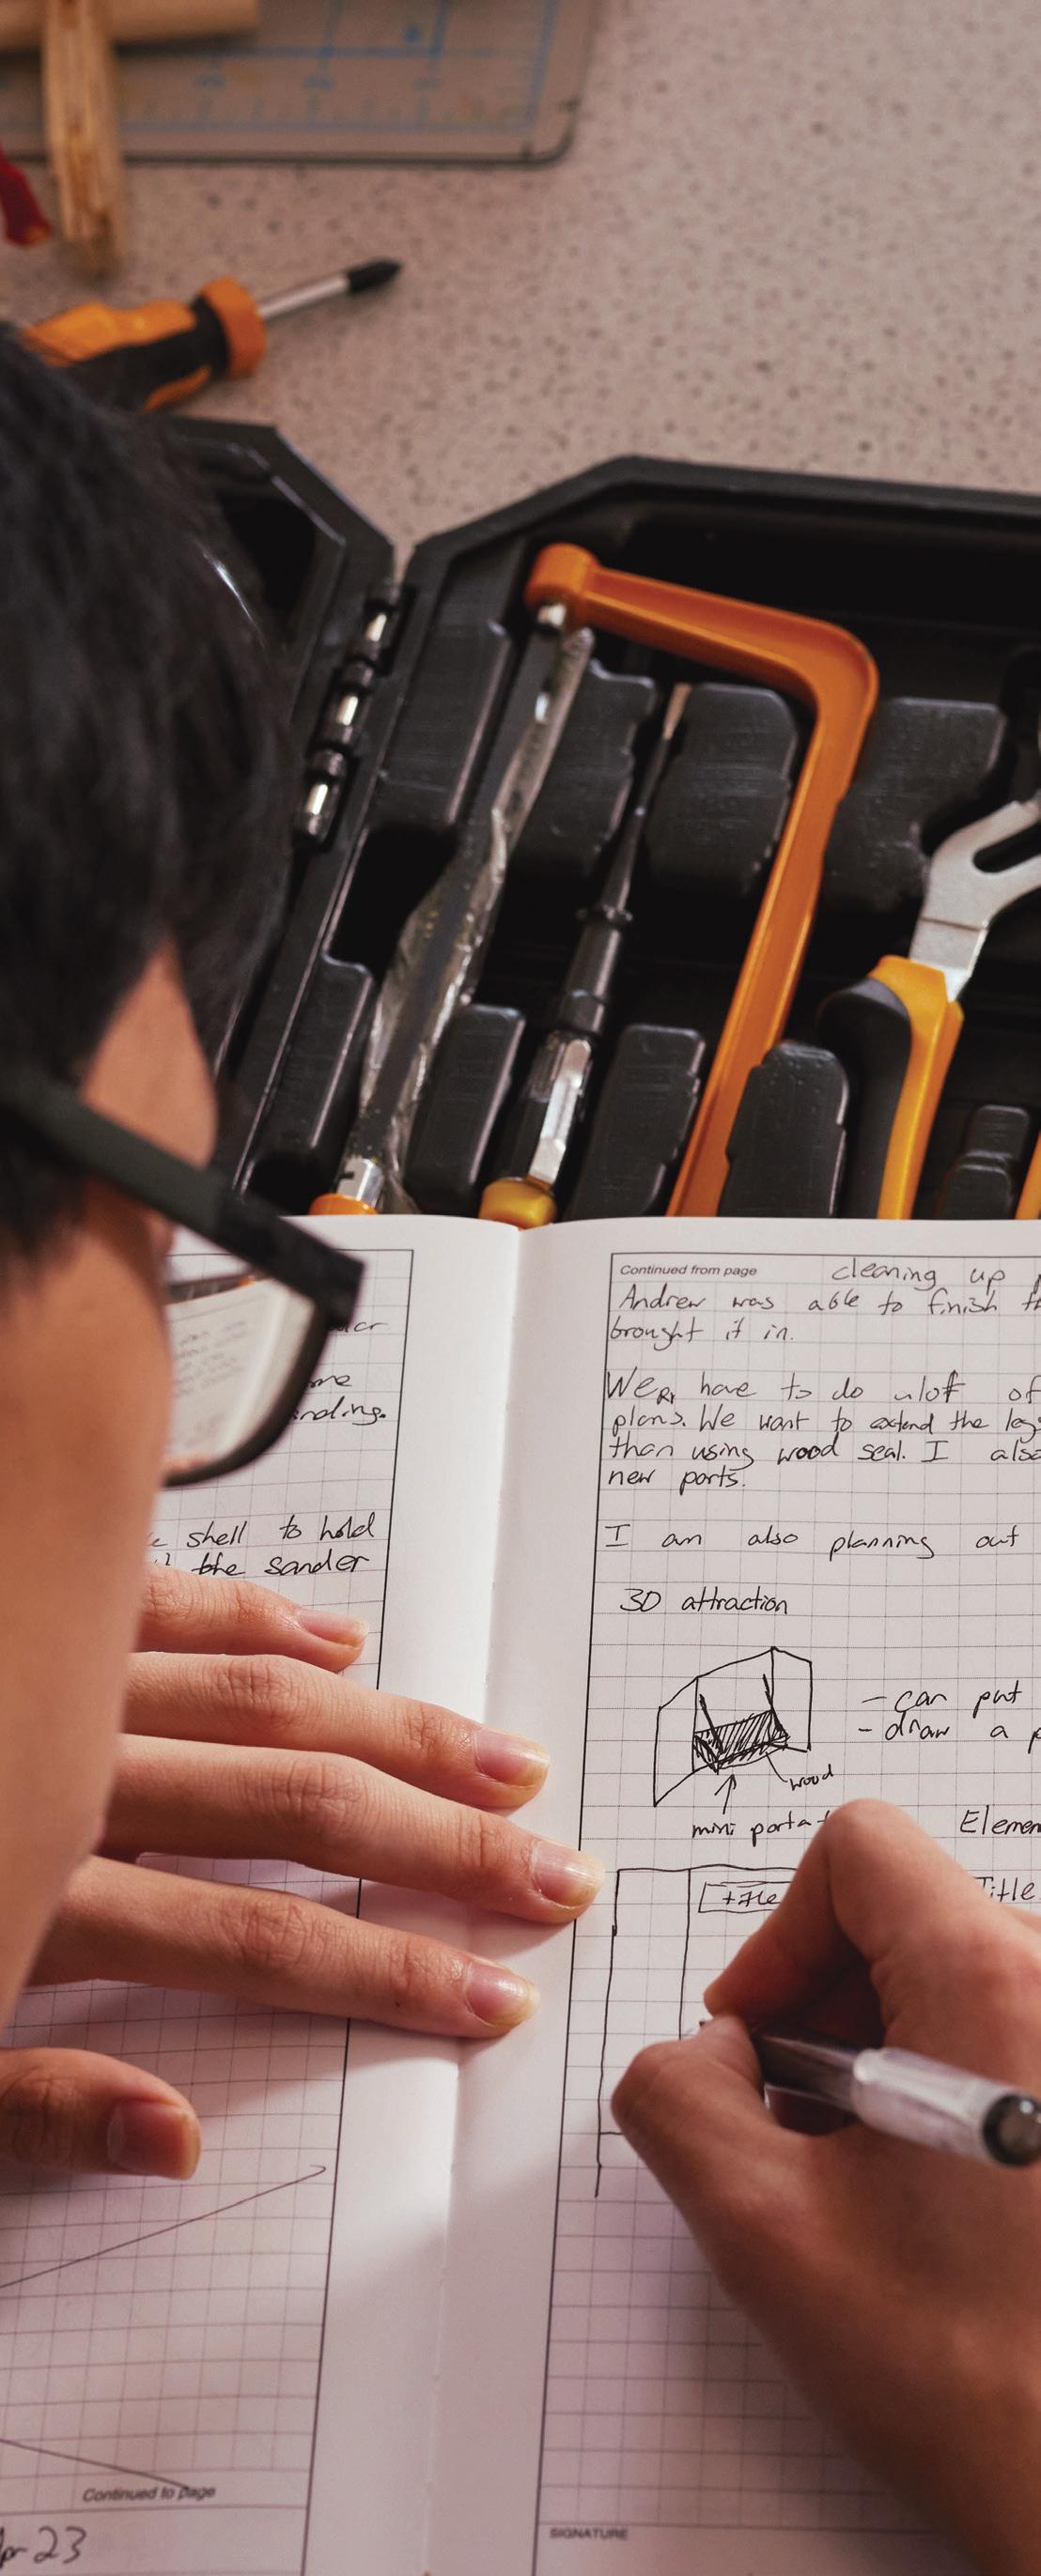 shell to hold
the sander
Continued to page
23
Continued from page cleaning up
Andrew was able to finish
brought it in.
We have to do alot of
plans. We want to extend the
than using wood seal. I also
new parts.
I am also planning out
3D attraction
- can put
- draw a
wood
mini
title
Title
SIGNATURE